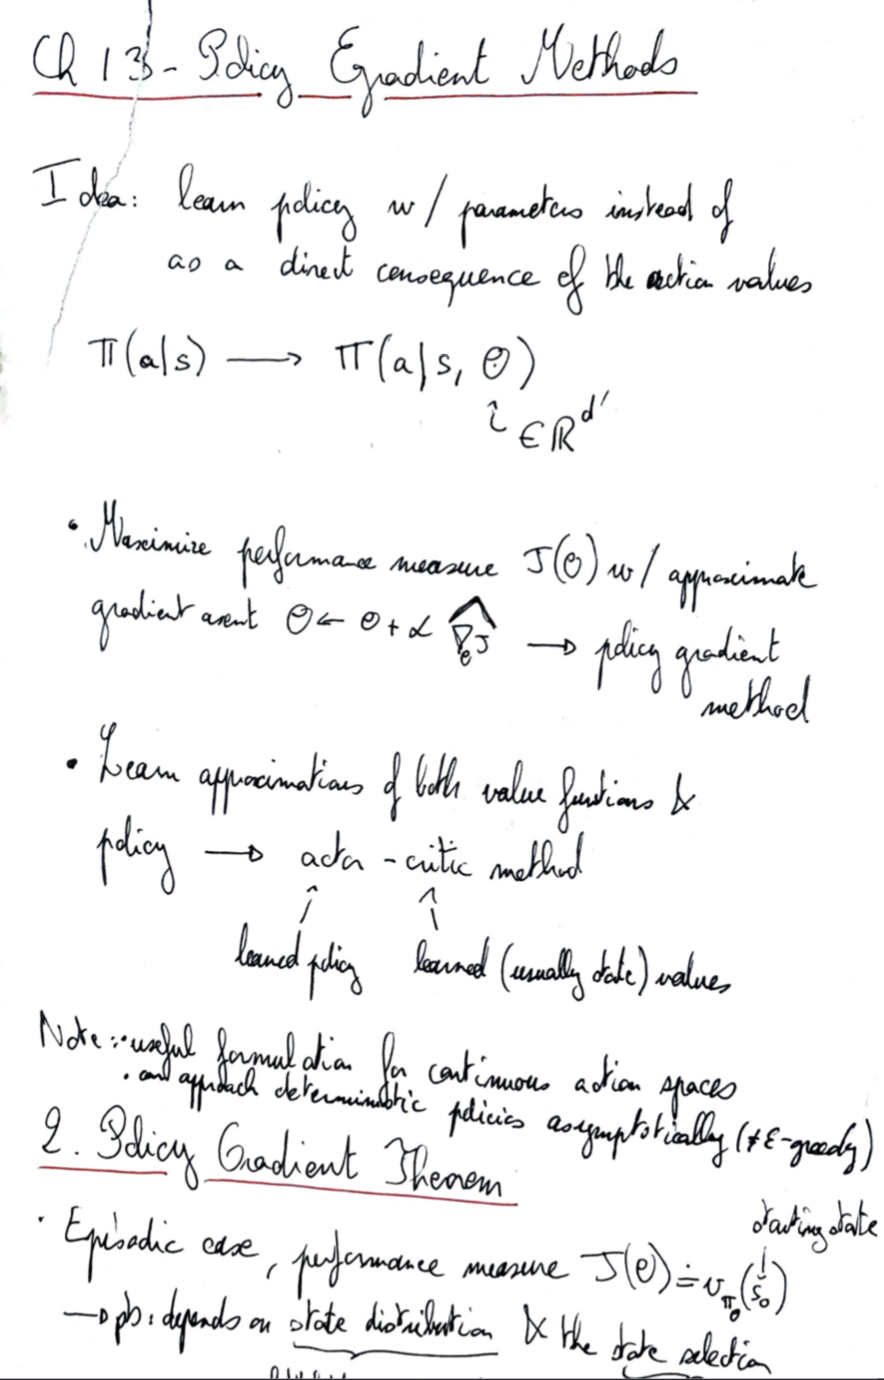 Ch 13 - Policy Gradient Methods
Idea: learn policy w/ parameters instead of
as a direct consequence of the action values
π(a|s) → π(a|s, θ)
∈ ℝ^d'
• Maximize performance measure J(θ) w/ approximate
gradient ascent θ ← θ + α \widehat{∇_θ J} → policy gradient
method
• Learn approximations of both value functions &
policy → actor-critic method
learned policy learned (usually state) values
Note: • useful formulation for continuous action spaces
• can approach deterministic policies asymptotically (≠ ε-greedy)
2. Policy Gradient Theorem
starting state
• Episodic case, performance measure J(θ) ≐ v_{π_θ}(s_0)
→ pb: depends on state distribution & the state selection